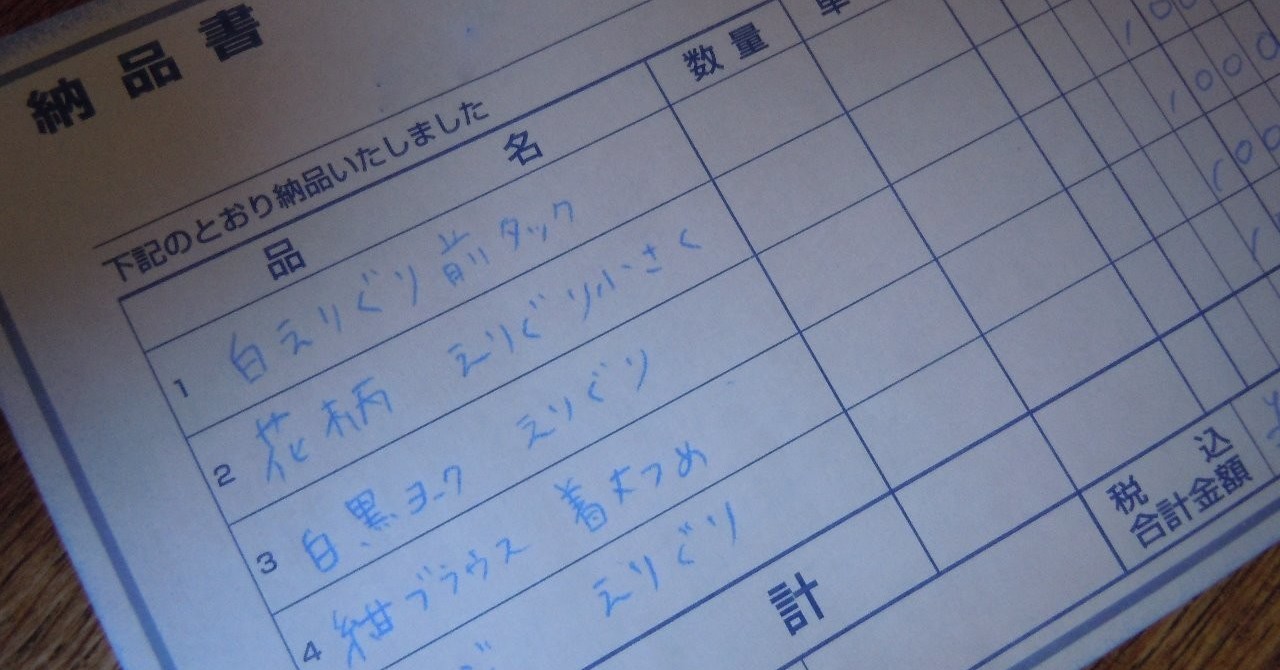 納品書
下記のとおり納品いたしました
品名 数量
1 白えりぐり前タック
2 花柄 えりぐり小さく
3 白黒ヨーク えりぐり
4 紺ブラウス 着丈つめ
えりぐり
計
税込
合計金額